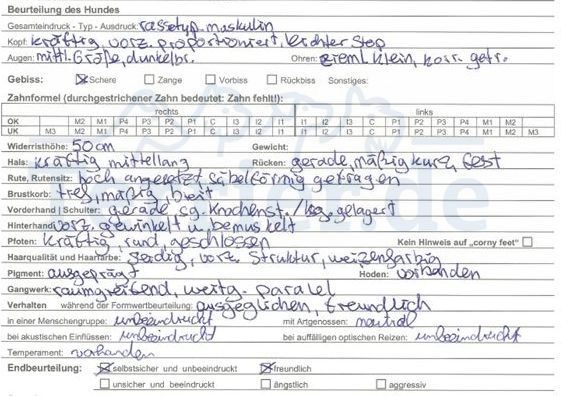 Beurteilung des Hundes
Gesamteindruck - Typ - Ausdruck: rassetyp. maskulin
Kopf: kräftig, vorz. proportioniert, leichter Stop
Augen: mittl. Größe, dunkelbr. Ohren: zieml. klein, korr. getr.
Gebiss: Schere Zange Vorbiss Rückbiss Sonstiges:
Zahnformel (durchgestrichener Zahn bedeutet: Zahn fehlt!):
rechts links
OK M2 M1 P4 P3 P2 P1 C I3 I2 I1 I1 I2 I3 C P1 P2 P3 P4 M1 M2
UK M3 M2 M1 P4 P3 P2 P1 C I3 I2 I1 I1 I2 I3 C P1 P2 P3 P4 M1 M2 M3
Widerristhöhe: 50 cm Gewicht:
Hals: kräftig mittellang Rücken: gerade, mäßig kurz, fest
Rute, Rutensitz: hoch angesetzt säbelförmig getragen
Brustkorb: tief, mäßig breit
Vorderhand | Schulter: gerade sg. Knochenst. / kg. gelagert
Hinterhand: vorz. gewinkelt u. bemuskelt
Pfoten: kräftig, rund, geschlossen Kein Hinweis auf „corny feet"
Haarqualität und Haarfarbe: seidig, vorz. Struktur, weizenfarbig
Pigment: ausgeprägt Hoden: vorhanden
Gangwerk: raumgreifend, weitg. paralel
Verhalten während der Formwertbeurteilung: ausgeglichen, freundlich
in einer Menschengruppe: unbeeindruckt mit Artgenossen: neutral
bei akustischen Einflüssen: unbeeindruckt bei auffälligen optischen Reizen: unbeeindruckt
Temperament: vorhanden
Endbeurteilung: selbstsicher und unbeeindruckt freundlich
unsicher und beeindruckt ängstlich aggressiv